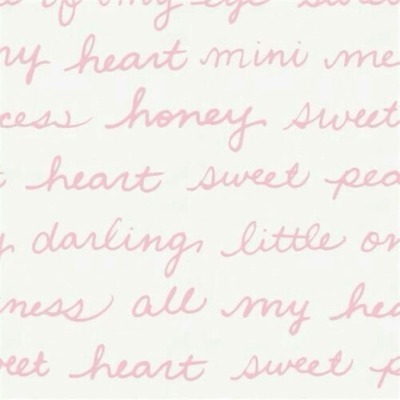 of my eye swee
my heart mini me
cess honey sweet
t heart sweet pea
y darling little on
ness all my hea
weet heart sweet p